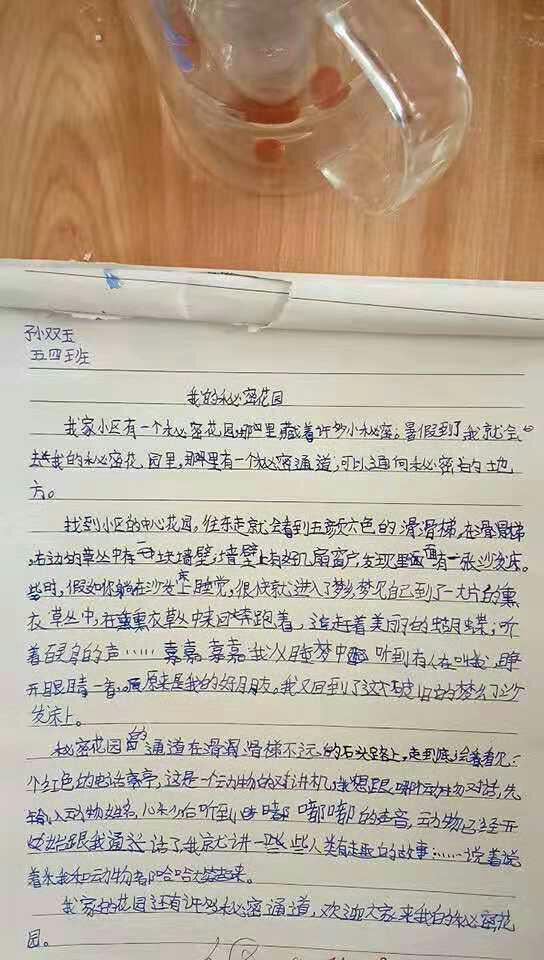 孙双玉
五四班
我的秘密花园
我家小区有一个秘密花园那里藏着许多小秘密。暑假到了我就会
去我的秘密花园里,那里有一个秘密通道,可以通向秘密的地
方。
找到小区的中心花园,往东走就会看到五颜六色的滑滑梯,在滑滑梯
右边的草丛中有一块墙壁,墙壁上有好几扇窗户,发现里面有一张沙发床。
时,假如你躺在沙发床上睡觉,很快就进入了梦乡梦见自己到了一大片的薰
衣草丛中,在薰衣草丛中来回奔跑着,追赶着美丽的蝴蝶,听
着百鸟的声……嘉嘉嘉嘉我从睡梦中听到有人在叫我,睁
开眼睛一看,原来是我的好朋友。我又回到了这个破旧的梦幻沙
发床上。
秘密花园的通道在滑滑梯不远的石头路上,走到底会看见一
个红色的电话亭,这是一个动物的对讲机,我想跟哪个动物对话,先
输入动物姓名,几秒后听到嘟嘟嘟的声音,动物已经开
始跟我通话了我就讲一些人类有趣的故事……说着说
着我和动物都哈哈大笑起来。
我家的花园还有许多秘密通道,欢迎大家来我的秘密花
园。